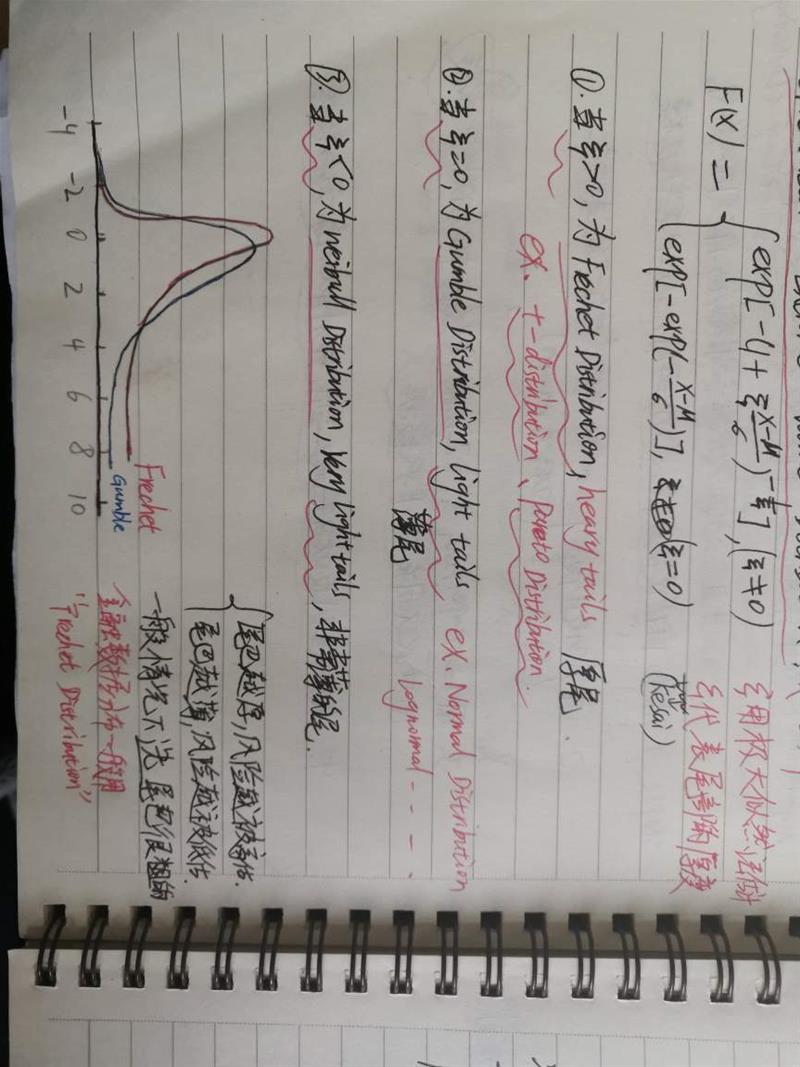 F(x) = { exp[-(1+ξ\frac{x-μ}{σ})^{-\frac{1}{ξ}}], (ξ≠0) ξ用极大似然法估计
exp[-exp(-\frac{x-μ}{σ})], (ξ=0) ξ代表尾部的厚度
(kesai)
①. 当ξ>0, 为Frechet Distribution, heavy tails 厚尾.
ex. t-distribution、Pareto Distribution.
②. 当ξ=0, 为Gumble Distribution, light tails ex. Normal Distribution
薄尾 Lognormal - - - .
③. 当ξ<0, 为Weibull Distribution, very light tails, 非常薄的尾.
尾巴越厚, 风险越被高估.
尾巴越薄, 风险越被低估.
一般情况下选尾巴很粗的
金融数据分布一般用
"Frechet Distribution"
Frechet
Gumble
-4 -2 0 2 4 6 8 10